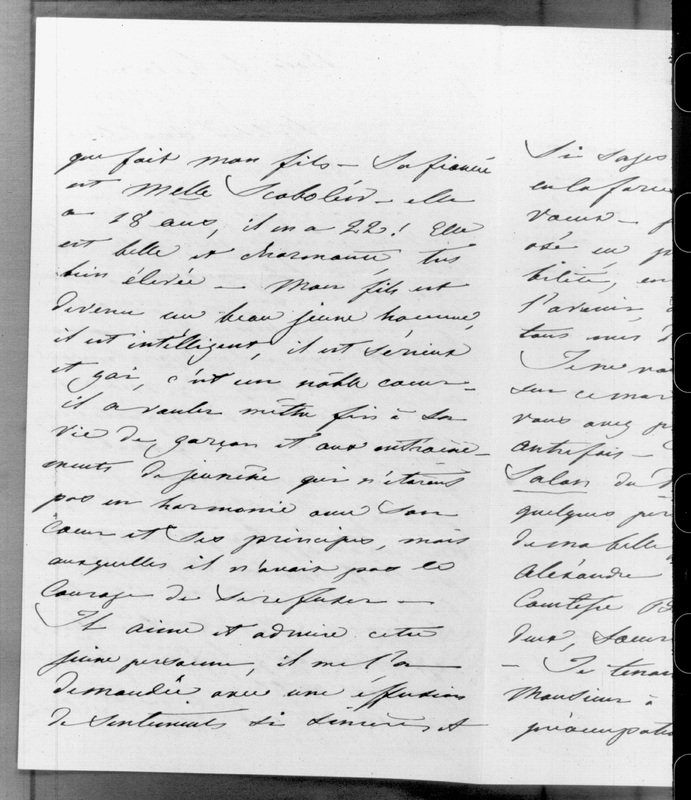 que fait mon fils – Sa fiancée
est Melle Scobelew – elle
a 18 ans, il en a 22! Elle
est belle et charmante, très
bien élevée – Mon fils est
devenu un beau jeune homme,
il est intélligent, il est sérieux
et gai, c'est un nôble coeur –
il a voulu mettre fin à sa
vie de garçon et aux entraine-
ments de jeunesse qui n'étaient
pas en harmonie avec son
coeur et ses principes, mais
auxquelles il n'avait pas le
courage de se refuser –
Il aime et admire cette
jeune personne, il me l'a
demandée avec une éffusion
de sentiments si sincères et
Si sages
en la
voeux –
osé en
bilité, en
l'avenir,
tous mes
Je ne
sur ce mar
vous avez p
autrefois –
Salon du
quelques
de ma belle
Alexandre
Comtesse B
deux, Soeur
– Je tenais
Monsieur à
préoccupati